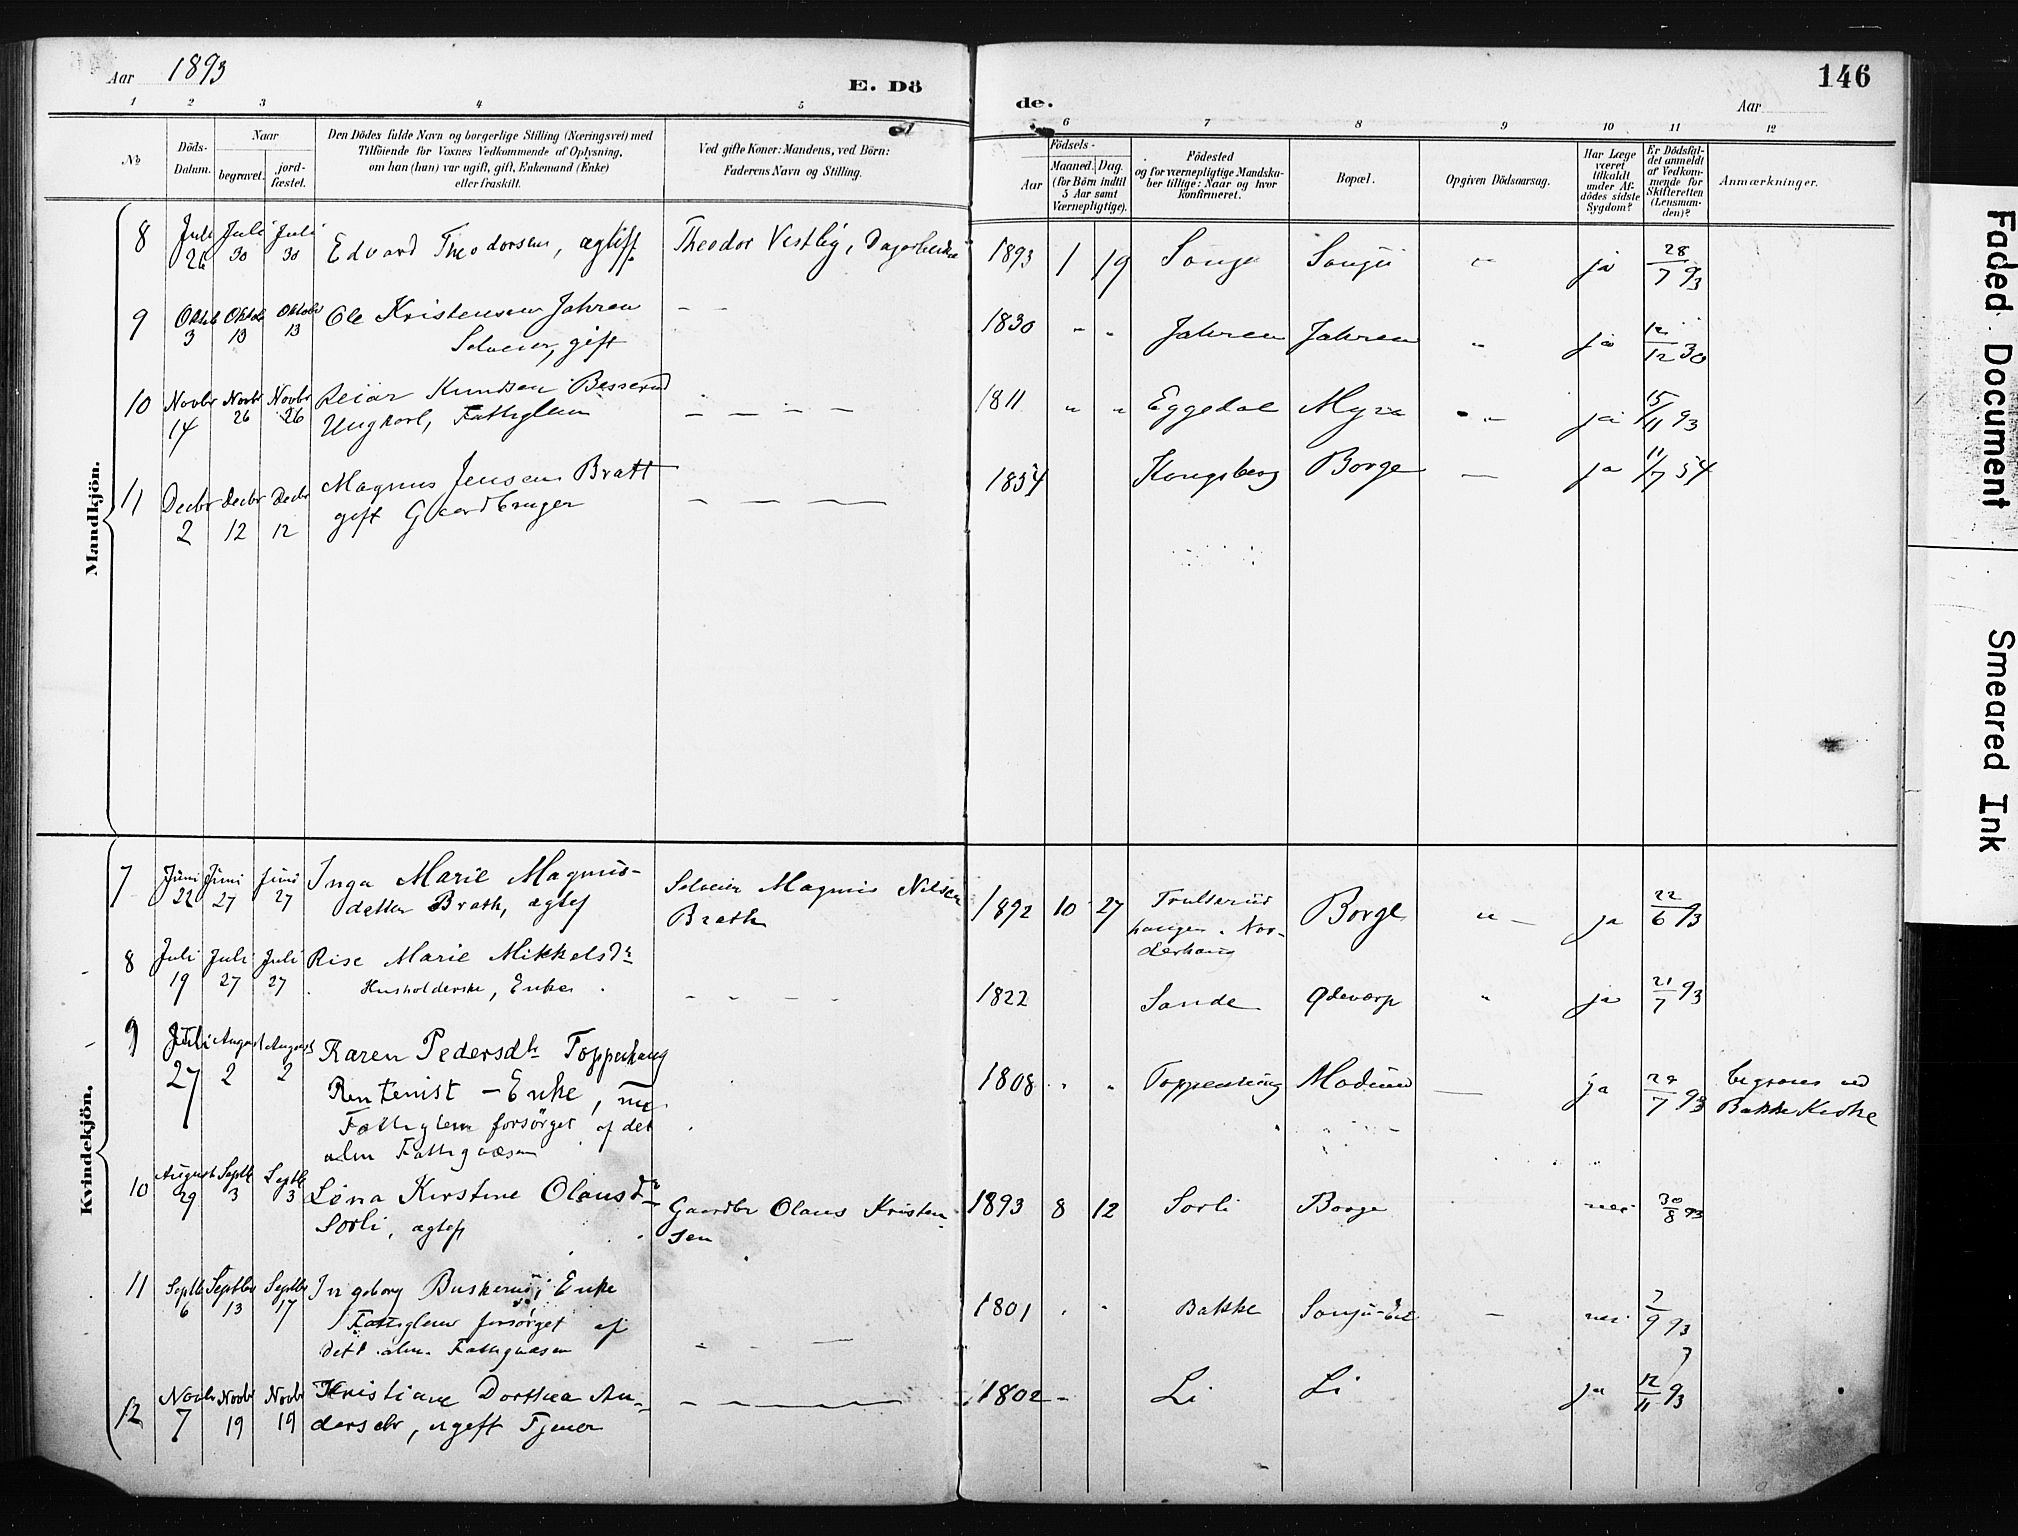 Aar 1893
E. Dö
de.
146
Aar
1 2 3 4 5 6 7 8 9 10 11 12
No
Döds-
Datum.
Naar
begravet.
jord-
fæstet.
Den Dödes fulde Navn og borgerlige Stilling (Næringsvei) med
Tilföiende for Voxnes Vedkommende af Oplysning,
om han (hun) var ugift, gift, Enkemand (Enke)
eller fraskilt.
Ved gifte Koner: Mandens, ved Börn:
Faderens Navn og Stilling.
Födsels-
Aar
Maaned.
Dag.
(for Börn indtil
5 Aar samt
Værnepligtige).
Födested
og for værnepligtige Mandska-
ber tillige: Naar og hvor
konfirmeret.
Bopæl.
Opgiven Dödsaarsag.
Har Læge
været
tilkaldt
under Af-
dödes sidste
Sygdom?
Er Dödsfal-
det anmeldt
af Vedkom-
mende for
Skifteretten
(Lensman-
den)?
Anmærkninger.
Mandkjön.
8 Juli 26 Juli 30 Juli 30 Edvard Theodorsen, ægtef. Theodor Vestby, 1893 1 19 ja 28/7 93
9 Oktob 3 Oktob 13 Oktobr 13 Ole Kristensen Jahren - - 1830 " " Jahren Jahren " ja 12/12 30
Selveier, gift
10 Novbr 14 Novbr 26 Novbr 26 Reiar Knudsen Besserud - - - - 1811 " " Eggedal Myra " ja 15/11 93
Ungkarl, Fattiglem
11 Decbr 2 Decbr 12 Decbr 12 Magnus Jensen Bratt - - - 1854 Kongsberg Borge - ja 11/7 54
gift Gaardbruger
Kvindekjön.
7 Juni 22 Juni 27 Juni 27 Inga Marie Magnus- Selveier Magnus Nilsen 1892 10 27 Borge " ja 22/6 93
datter Brath, ægtef Brath
haugen . Nor-
derhaug
8 Juli 19 Juli 27 Juli 27 Rise Marie Mikkelsdr - - - - 1822 Sande " ja 21/7 93
Husholderske, Enke
9 Juli 27 August 2 August 2 Karen Pedersdtr Toppenhaug 1808 " " Toppenhaug Modum - ja 28/7 93 begraves ved
Rentenist - Enke, Bakke Kirke
Fattiglem forsørget af det
alm Fattigvæsen
10 August 29 Septb 3 Septb 3 Lena Kirstine Olausdr Gaardbr Olaus Kristen- 1893 8 12 Sorli Borge nei 30/8 93
Sorli, ægtef sen
11 Septb 6 Septbr 13 Septbr 17 Ingeborg Buskerud, Enke 1801 " " Bakke - nei 7/9 93
Fattiglem forsørget af
det alm. Fattigvæsen
12 Novbr 7 Novbr 19 Novbr 19 Kristiane Dorthea An- - - - 1802 - Li Li ja 12/11 93
dersdtr, ugift Tjener
Faded Document
Smeared Ink